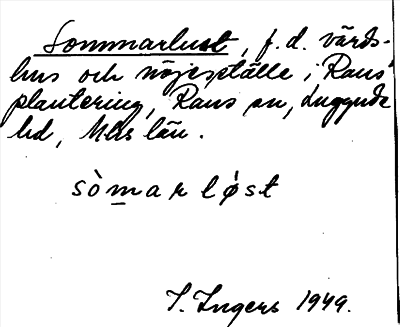 Sommarlust, f.d. värds-
hus och nöjesställe i Raus
plantering, Raus sn, Luggude
hd, Mlhs län.
sòmarløst
I. Ingers 1949.